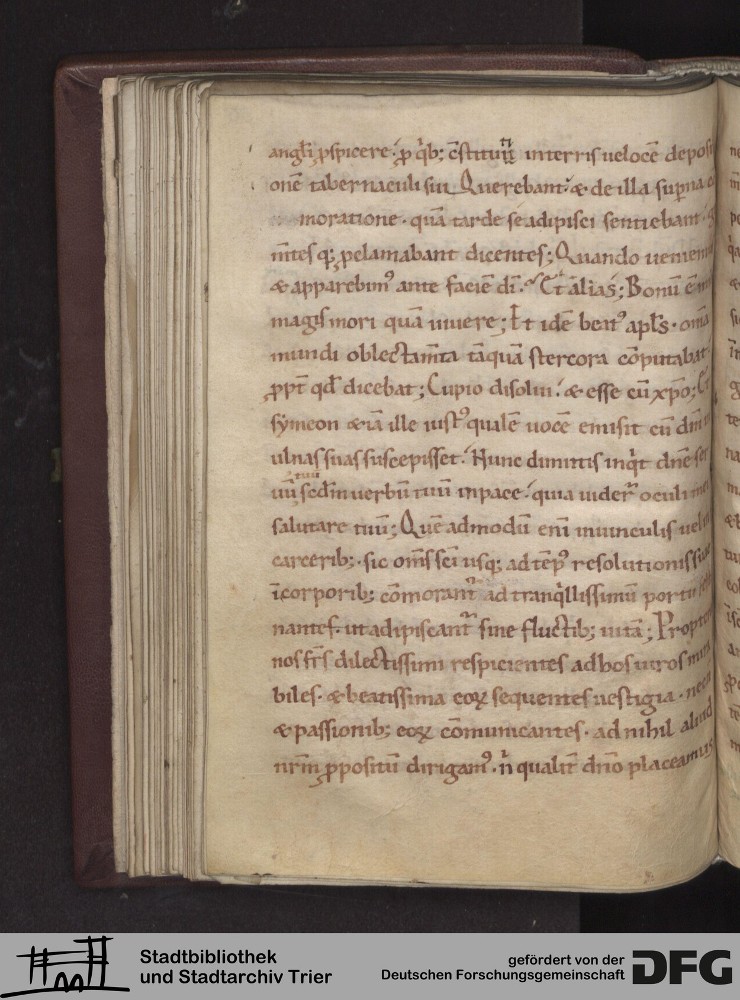 angłi ꝑspicere ꝓ qͥb; c̄stitut̄ interris uelocē deposi
onē tabernaculi sui Querebant᷑ & de illa supͬna
moratione · quā tarde se adipisci sentiebant ·
m̄tes q; ꝓclamabant dicentes; Quando ueniem
& apparebimꝰ ante faciē dī · Et alias; Bonū ē
magis mori quā uiuere; Et idē beatꝰ apłs · om̄a
mundi oblectam̄ta tāquā stercora cōputabat
ꝓpt̄ qđ dicebat; Cupio disolui & esse cū xp̄o;
symeon &iā ille iustꝰ qualē uocē emisit cū dnm̄
ulnas suas suscepisset · Nunc dimittis inqͥt dn̄e ser
uū tuū scđm uerbū tuū inpace · quia uider̄ oculi mei
salutare tuū; Quē admodū eni inuinculis uel in
carcerib; · sic om̄s sc̄i usq; ad tēpꝰ resolutionis suae
ī corporib; cōmorant᷑ ad tranqͥllissimū portū
nantes · ut adipiscant᷑ sine fluctib; uitā; Propter
nos fr̄s dilectissimi respicientes ad hos uiros mira
biles · & beatissima eoꝝ sequentes uestigia · necn
& passionib; eoꝝ cōmunicantes · ad nihil aliud
nr̄m ꝓpositū dirigamꝰ · n̄ qualit̄ dn̄o placeamus
Stadtbibliothek
und Stadtarchiv Trier
gefördert von der
Deutschen Forschungsgemeinschaft
DFG